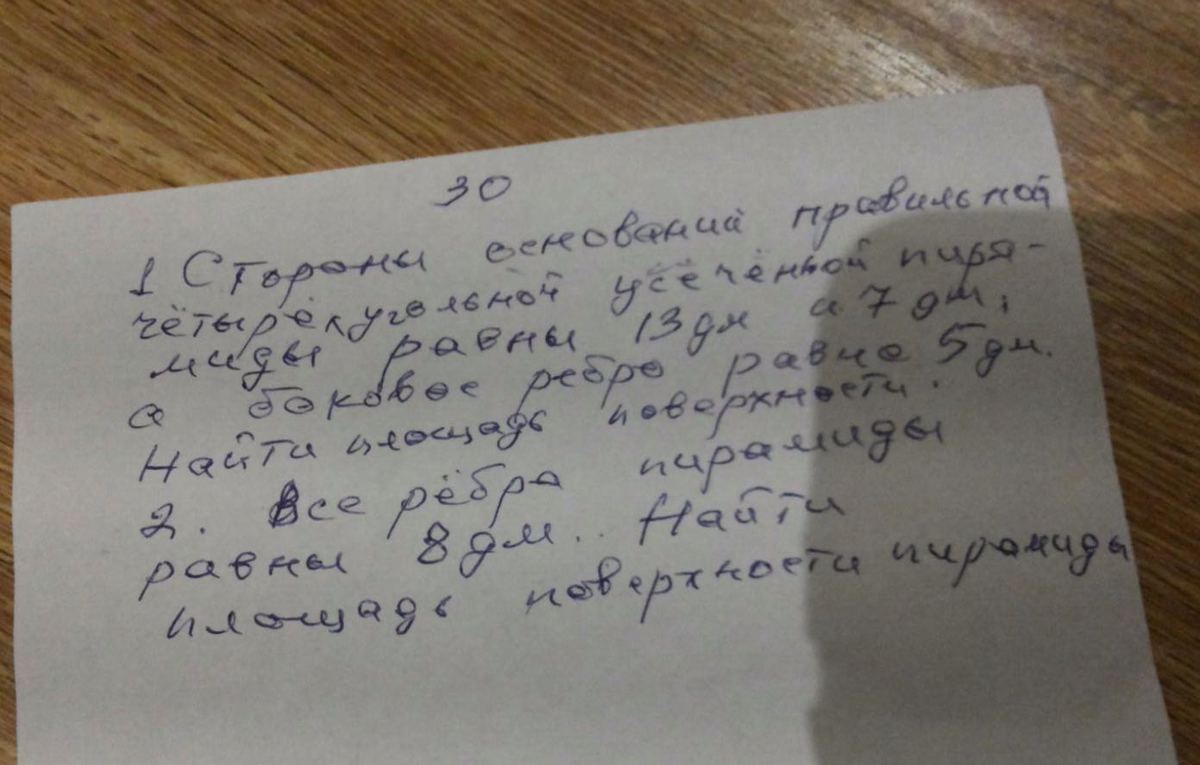 30
1 Стороны оснований правильной
четырёхугольной усечённой пира-
миды равны 13 дм и 7 дм,
а боковое ребро равно 5 дм.
Найти площадь поверхности.
2. Все рёбра пирамиды
равны 8 дм.. Найти
площадь поверхности пирамиды